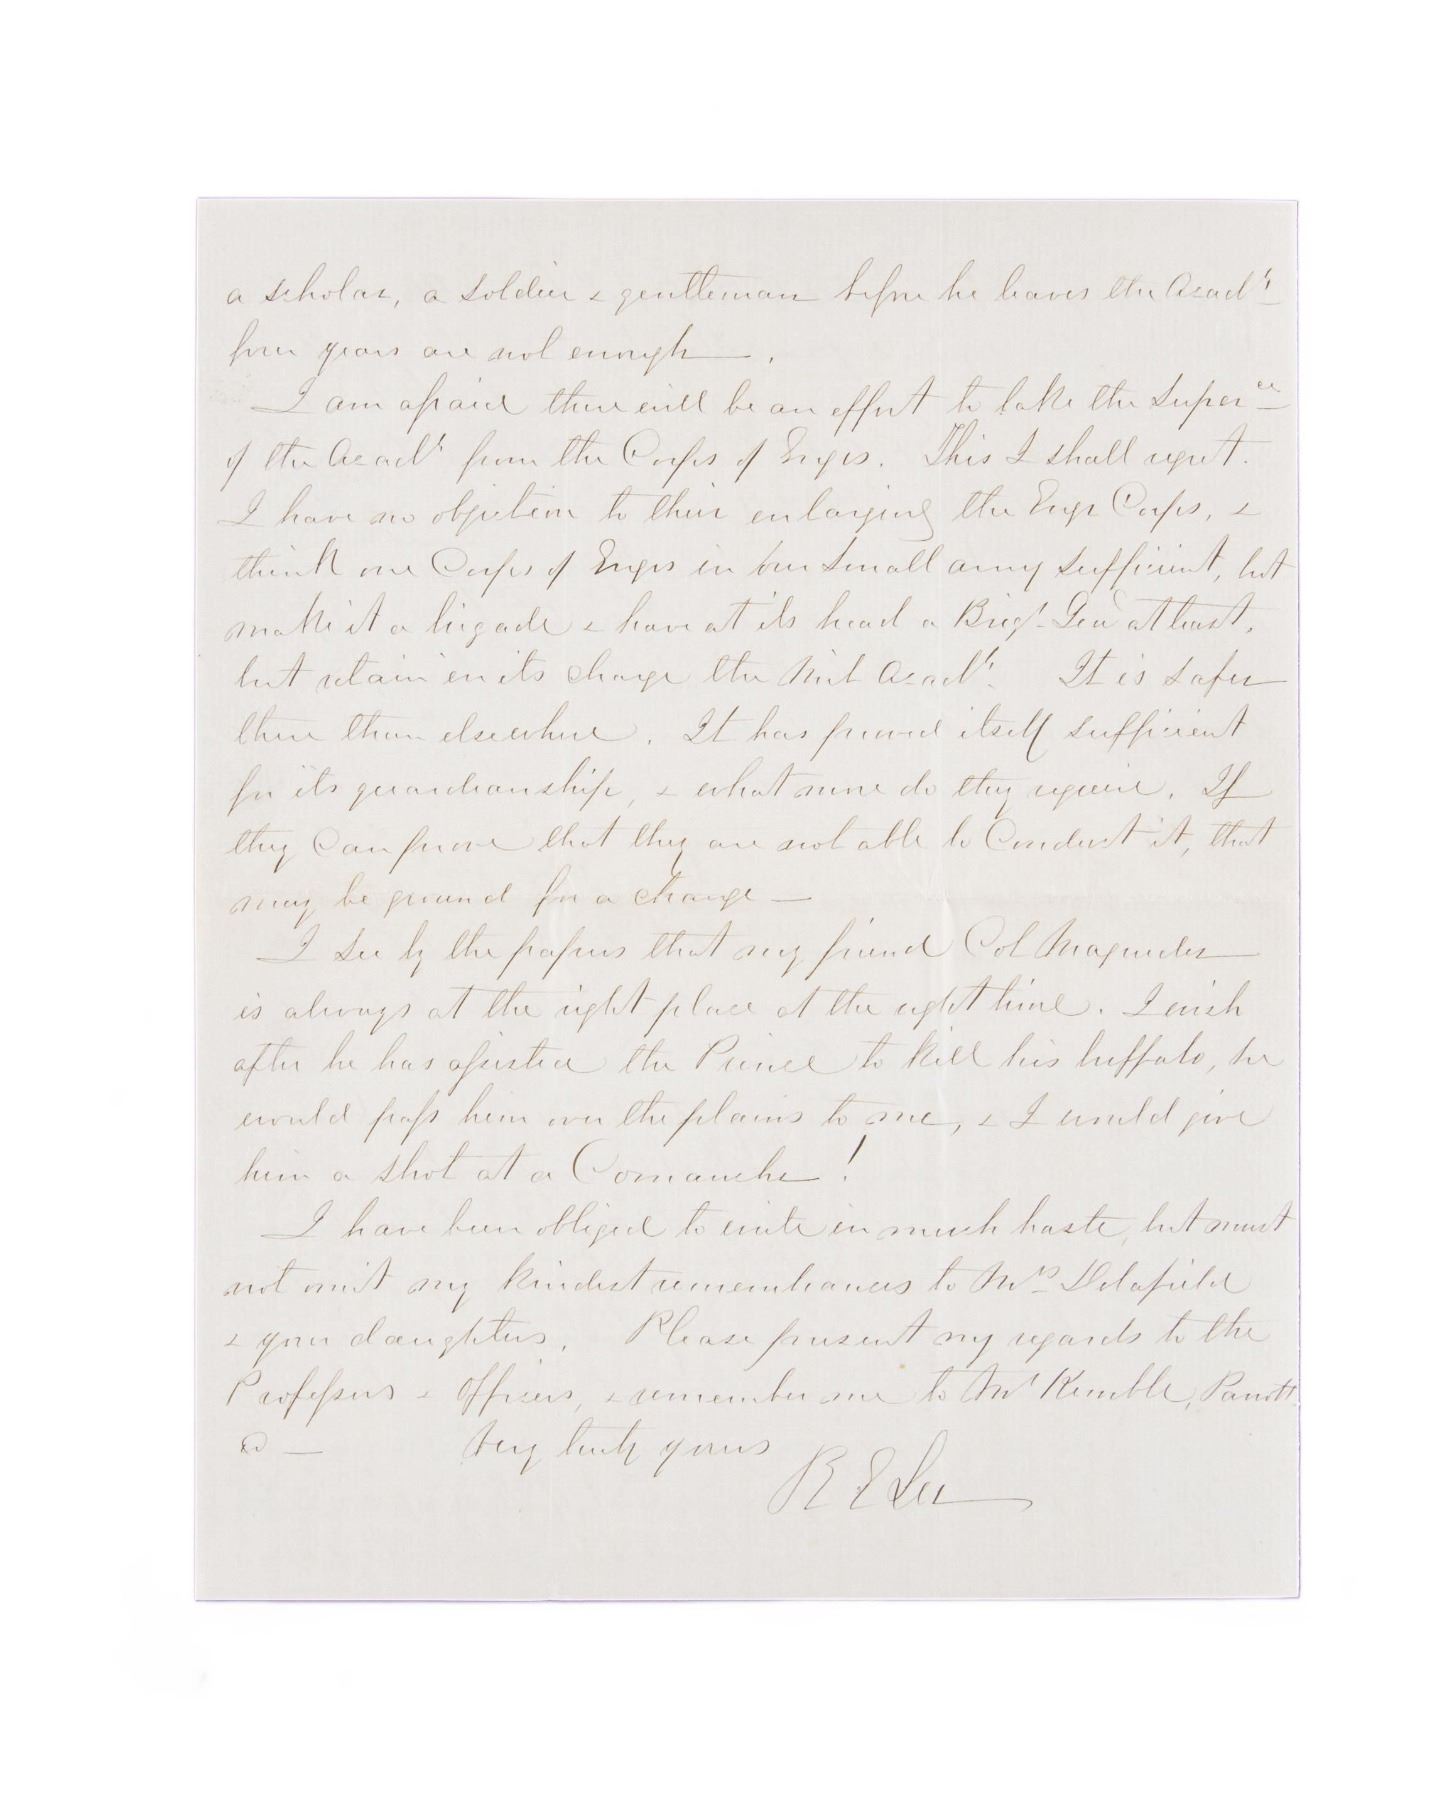 a scholar, a soldier & gentleman before he leaves the Acad^y
four years are not enough — .
I am afraid there will be an effort to take the Super^ce
of the Acad^y from the Corps of Engrs. This I shall regret.
I have no objection to their enlarging the Engr Corps, &
think one Corps of Engrs in our small army sufficient, but
make it a brigade & have at its head a Brig^r Gen^l at least,
but retain in its charge the Mil Acad^y. It is safer
there than elsewhere. It has proved itself sufficient
for its guardianship, & what more do they require. If
they can prove that they are not able to Conduct it, that
may be ground for a change —
I see by the papers that my friend Col Magruder
is always at the right place at the right time. I wish
after he has assisted the Prince to kill his buffalo, he
would pass him over the plains to me, & I would give
him a shot at a Comanche!
I have been obliged to write in much haste, but must
not omit my kindest remembrances to M^rs Delafield
& your daughters. Please present my regards to the
Professors & Officers, & remember me to M^r Kemble, Parrott
— Very truly yours
R E Lee